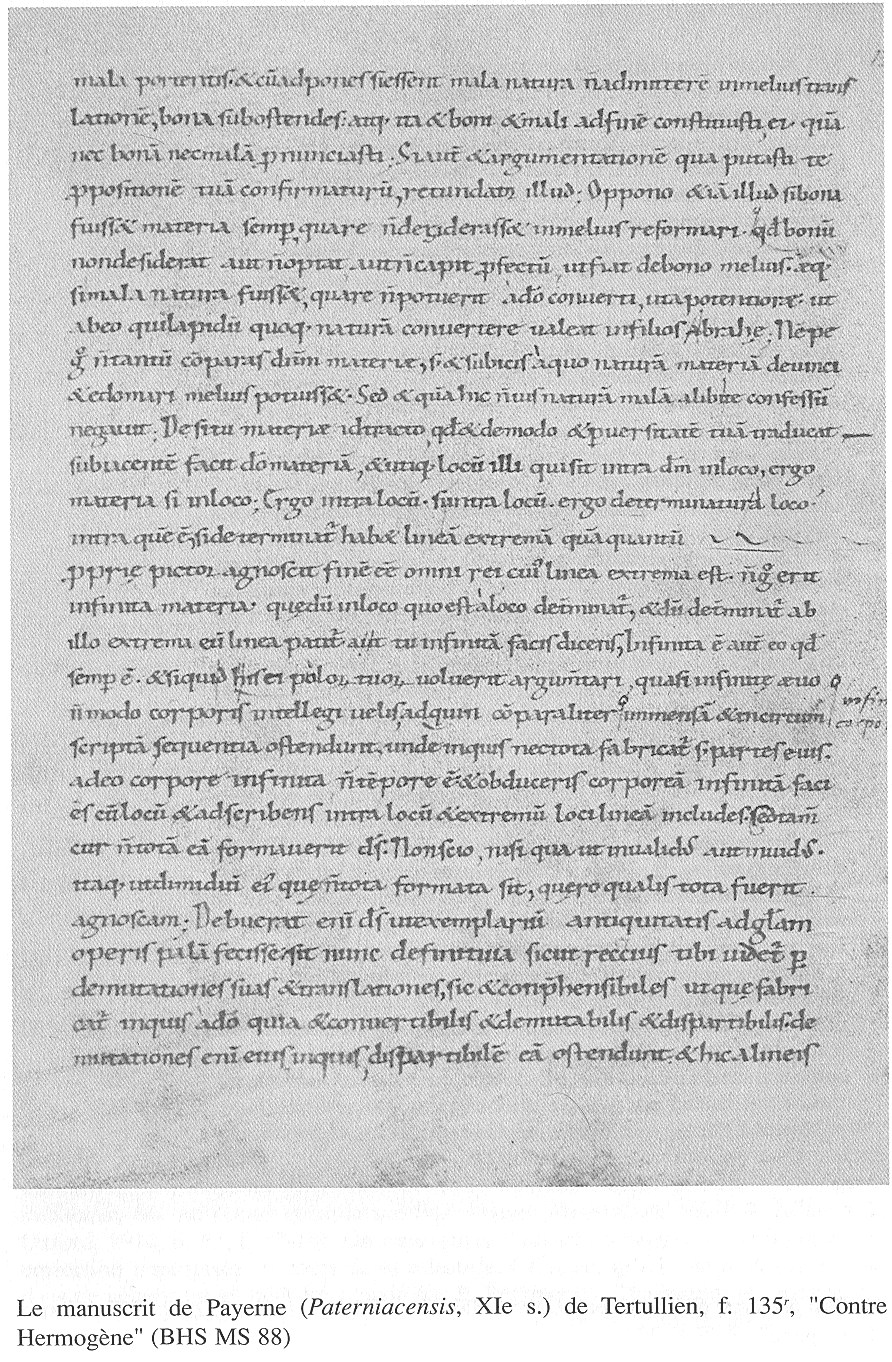 mala portentis. &cū adpones si essent mala natura n̄ admittere inmelius trans
lationē, bona subostendes: atq; ita &boni &mali ad finē constituisti, ei quā
nec bonā nec malā p̱nunciasti. Si aut̄ &argumentationē qua putasti te
p̱positionē tuā confirmaturū, retundam illud: Oppono &iā illud si bona
fuiss& materia semp̱, quare n̄desiderass& inmelius reformari. qđ bonū
nondesiderat aut n̄optat aut n̄capit p̱fectū, ut fiat debono melius. æq;
si mala natura fuiss&, quare n̄potuerit ado converti, uta potentiore: ut
abeo qui lapidū quoq; naturā convertere ualeat infilios Abrahe. Nēpe
g̊ n̄tantū cōparas dn̄m materie, s; &subicis aquo naturā materiā devinci
&edomari melius potuiss&. Sed & quā hic n̄uis naturā malā alibi te confessū
negavit. De situ materie id tracto, qđ &demodo &p̱versitatē tuā traducat
subiacentē facit do materiā, &utiq; locū illi qui sit intra dm̄ inloco, ergo
materia si inloco; Ergo intra locū. si intra locū. ergo determinatur a loco.
intra quē ē, si determinat̄ hab& lineā extremā quā quantū
p̱prie pictor agnoscit finē eē omni rei cui' linea extrema est. n̄ g̊ erit
infinita materia. que dū inloco quo est a loco det̄minat̄, &dū det̄minat̄ ab
illo extrema eū linea patit̄ at tu infinitā facis dicens, Infinita ē aut̄ eo qđ
semp̱ ē. &siquid discipulor tuor voluerit argum̄tari, quasi infinitę ævo
n̄ modo corporis intellegi velis, adquin cōparaliter immensā &incircum
scriptā sequentia ostendunt, unde inquis nectota fabricat̄ s; partes eius.
adeo corpore infinita n̄ tēpore ē: &obduceris corporeā infinitā faci
ēs cū locū &adscribens intra locū &extremū loci lineā includes. sed tam̄
cur n̄totā eā formaverit ds̄. Non scio, nisi qua ut invalidus aut invidus.
itaq; ut dimidiū ei' que n̄tota formata sit, quero qualis tota fuerit
agnoscam; Debuerat enī ds̄ ut exemplariū antiquitatis adgl̄am
operis palā fecisse: sit nunc definitiva sicut reccius tibi uidet̄ p̱
demutationes suas &translationes, sic &conp̄hensibiles ut que fabri
cat̄ inquis ado quia &convertibilis &demutabilis &dispartibilis. de
mutationes enī eius, inquis, dispartibilē eā ostendunt. &hic alineis
Le manuscrit de Payerne (Paterniacensis, XIe s.) de Tertullien, f. 135r, "Contre
Hermogène" (BHS MS 88)